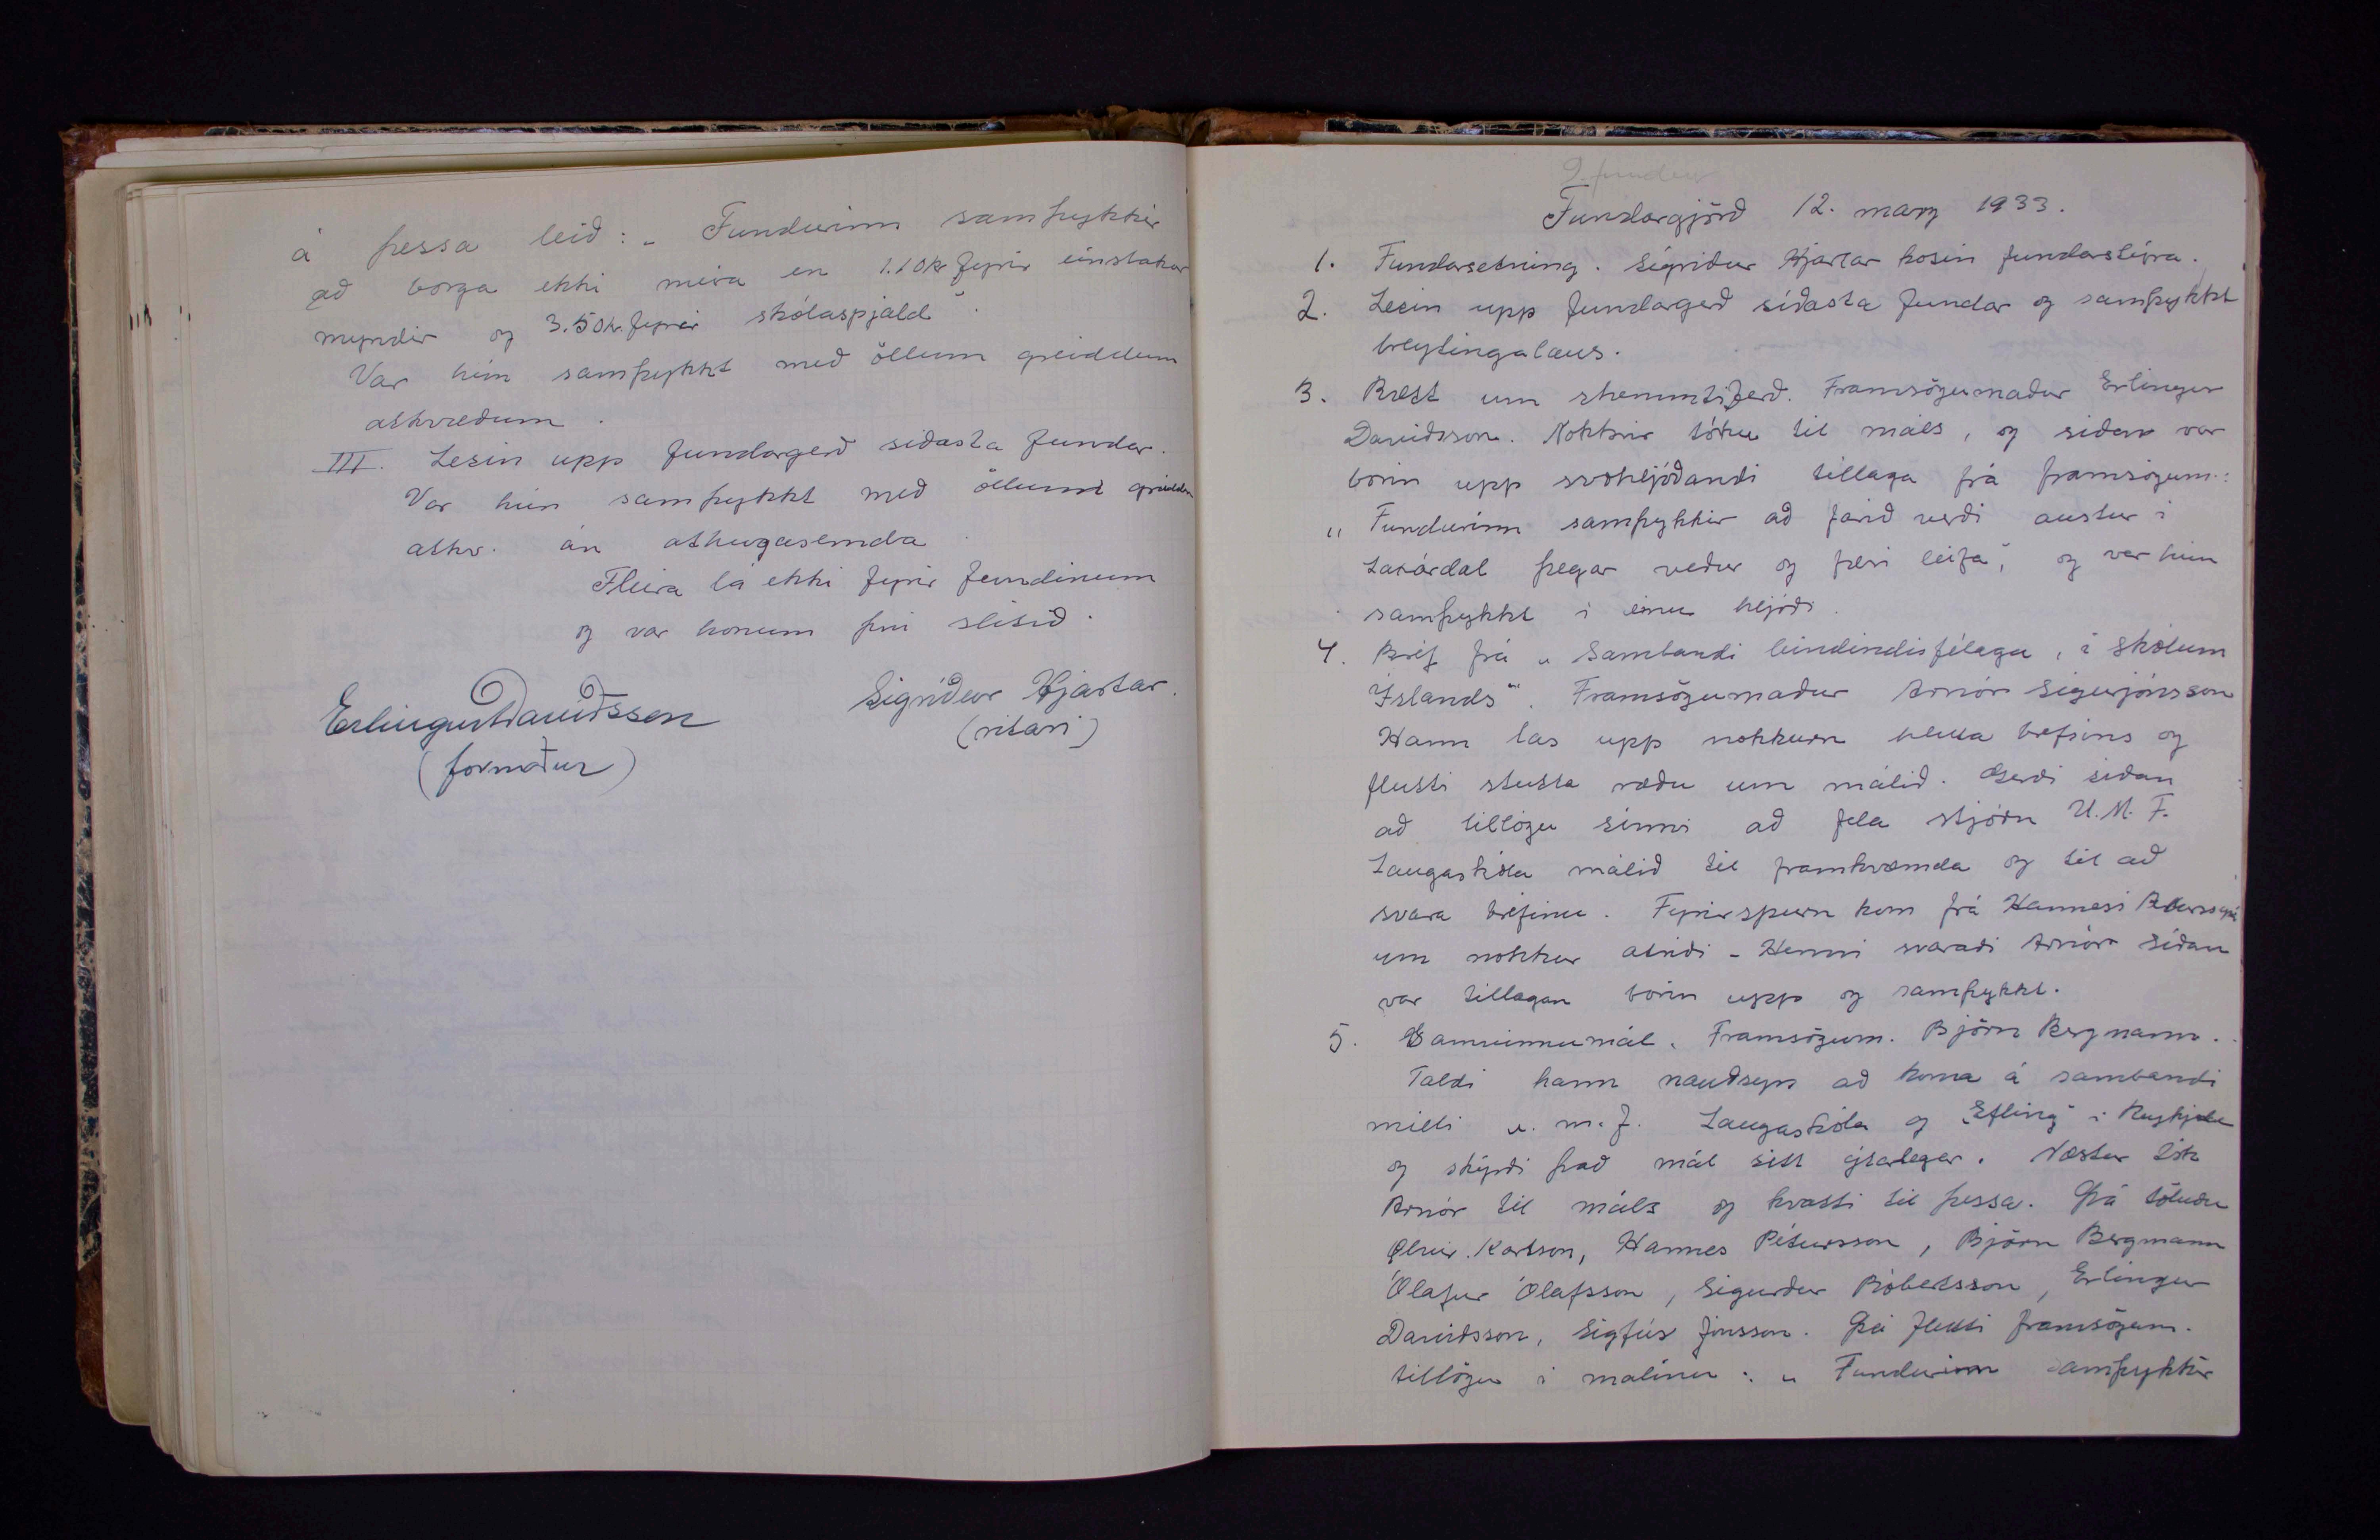 á þessa leið: „Fundurinn samþykkir
að borga ekki meira en 1.10 kr fyrir einstakar
myndir og 3.50 kr. fyrir skólaspjald".
Var hún samþykkt með öllum greiddum
atkvæðum.
III. Lesin upp fundargerð síðasta fundar.
Var hún samþykkt með öllum greiddum
atkv. án athugasemda.
Fleira lá ekki fyrir fundinum
og var honum því slitið.
Erlingur Davíðsson
(formaður)
Sigríður Hjartar.
(ritari)
9. fundur
Fundargjörð 12. marz 1933.
1. Fundarsetning. Sigríður Hjartar kosin fundarstýra.
2. Lesin upp fundargerð síðasta fundar og samþykkt
breytingalaus.
3. Rætt um skemmtiferð. Framsögumaður Erlingur
Davíðsson. Nokkrir tóku til máls, og síðan var
borin upp svohljóðandi tillaga frá framsögum.:
„Fundurinn samþykkir að farið verði austur í
Laxárdal þegar veður og færi leifa", og var hún
samþykkt í einu hljóði.
4. Bréf frá „Sambandi bindindisfélaga, í skólum
Íslands". Framsögumaður Arnór Sigurjónsson
Hann las upp nokkurn hluta bréfsins og
flutti stutta ræðu um málið. Gerði síðan
að tillögu sinni að fela stjórn U.M.F.
Laugaskóla málið til framkvæmda og til að
svara bréfinu. Fyrirspurn kom frá Hannesi Péturssyni
um nokkur atriði - Henni svaraði Arnór síðan
var tillagan borin upp og samþykkt.
5. Samvinnumál. Framsögum. Björn Bergmann.
Taldi hann nauðsyn að koma á sambandi
milli u.m.f. Laugaskóla og „Efling" í Reykjadal
og skýrði það mál sitt ýtarlegar. Næstur tók
Arnór til máls og hvatti til þessa. Þá töluðu
Karlsson, Hannes Pétursson, Björn Bergmann
Ólafur Ólafsson, Sigurður Róbertsson, Erlingur
Davíðsson, Sigfús Jónsson. Þá flutti framsögum.
tillögu í málinu: „Fundurinn samþykkir